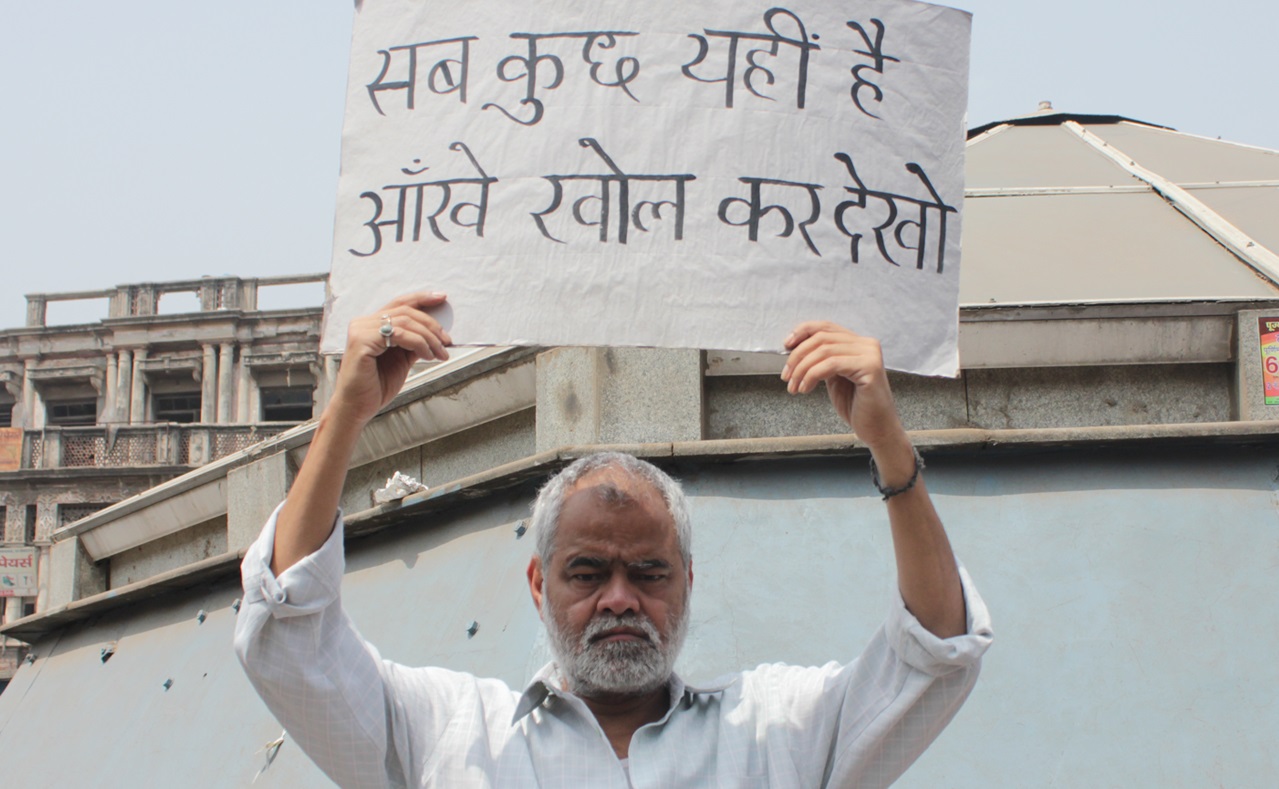 सब कुछ यहीं है
आँखे खोल कर देखो
पेयर्स
6